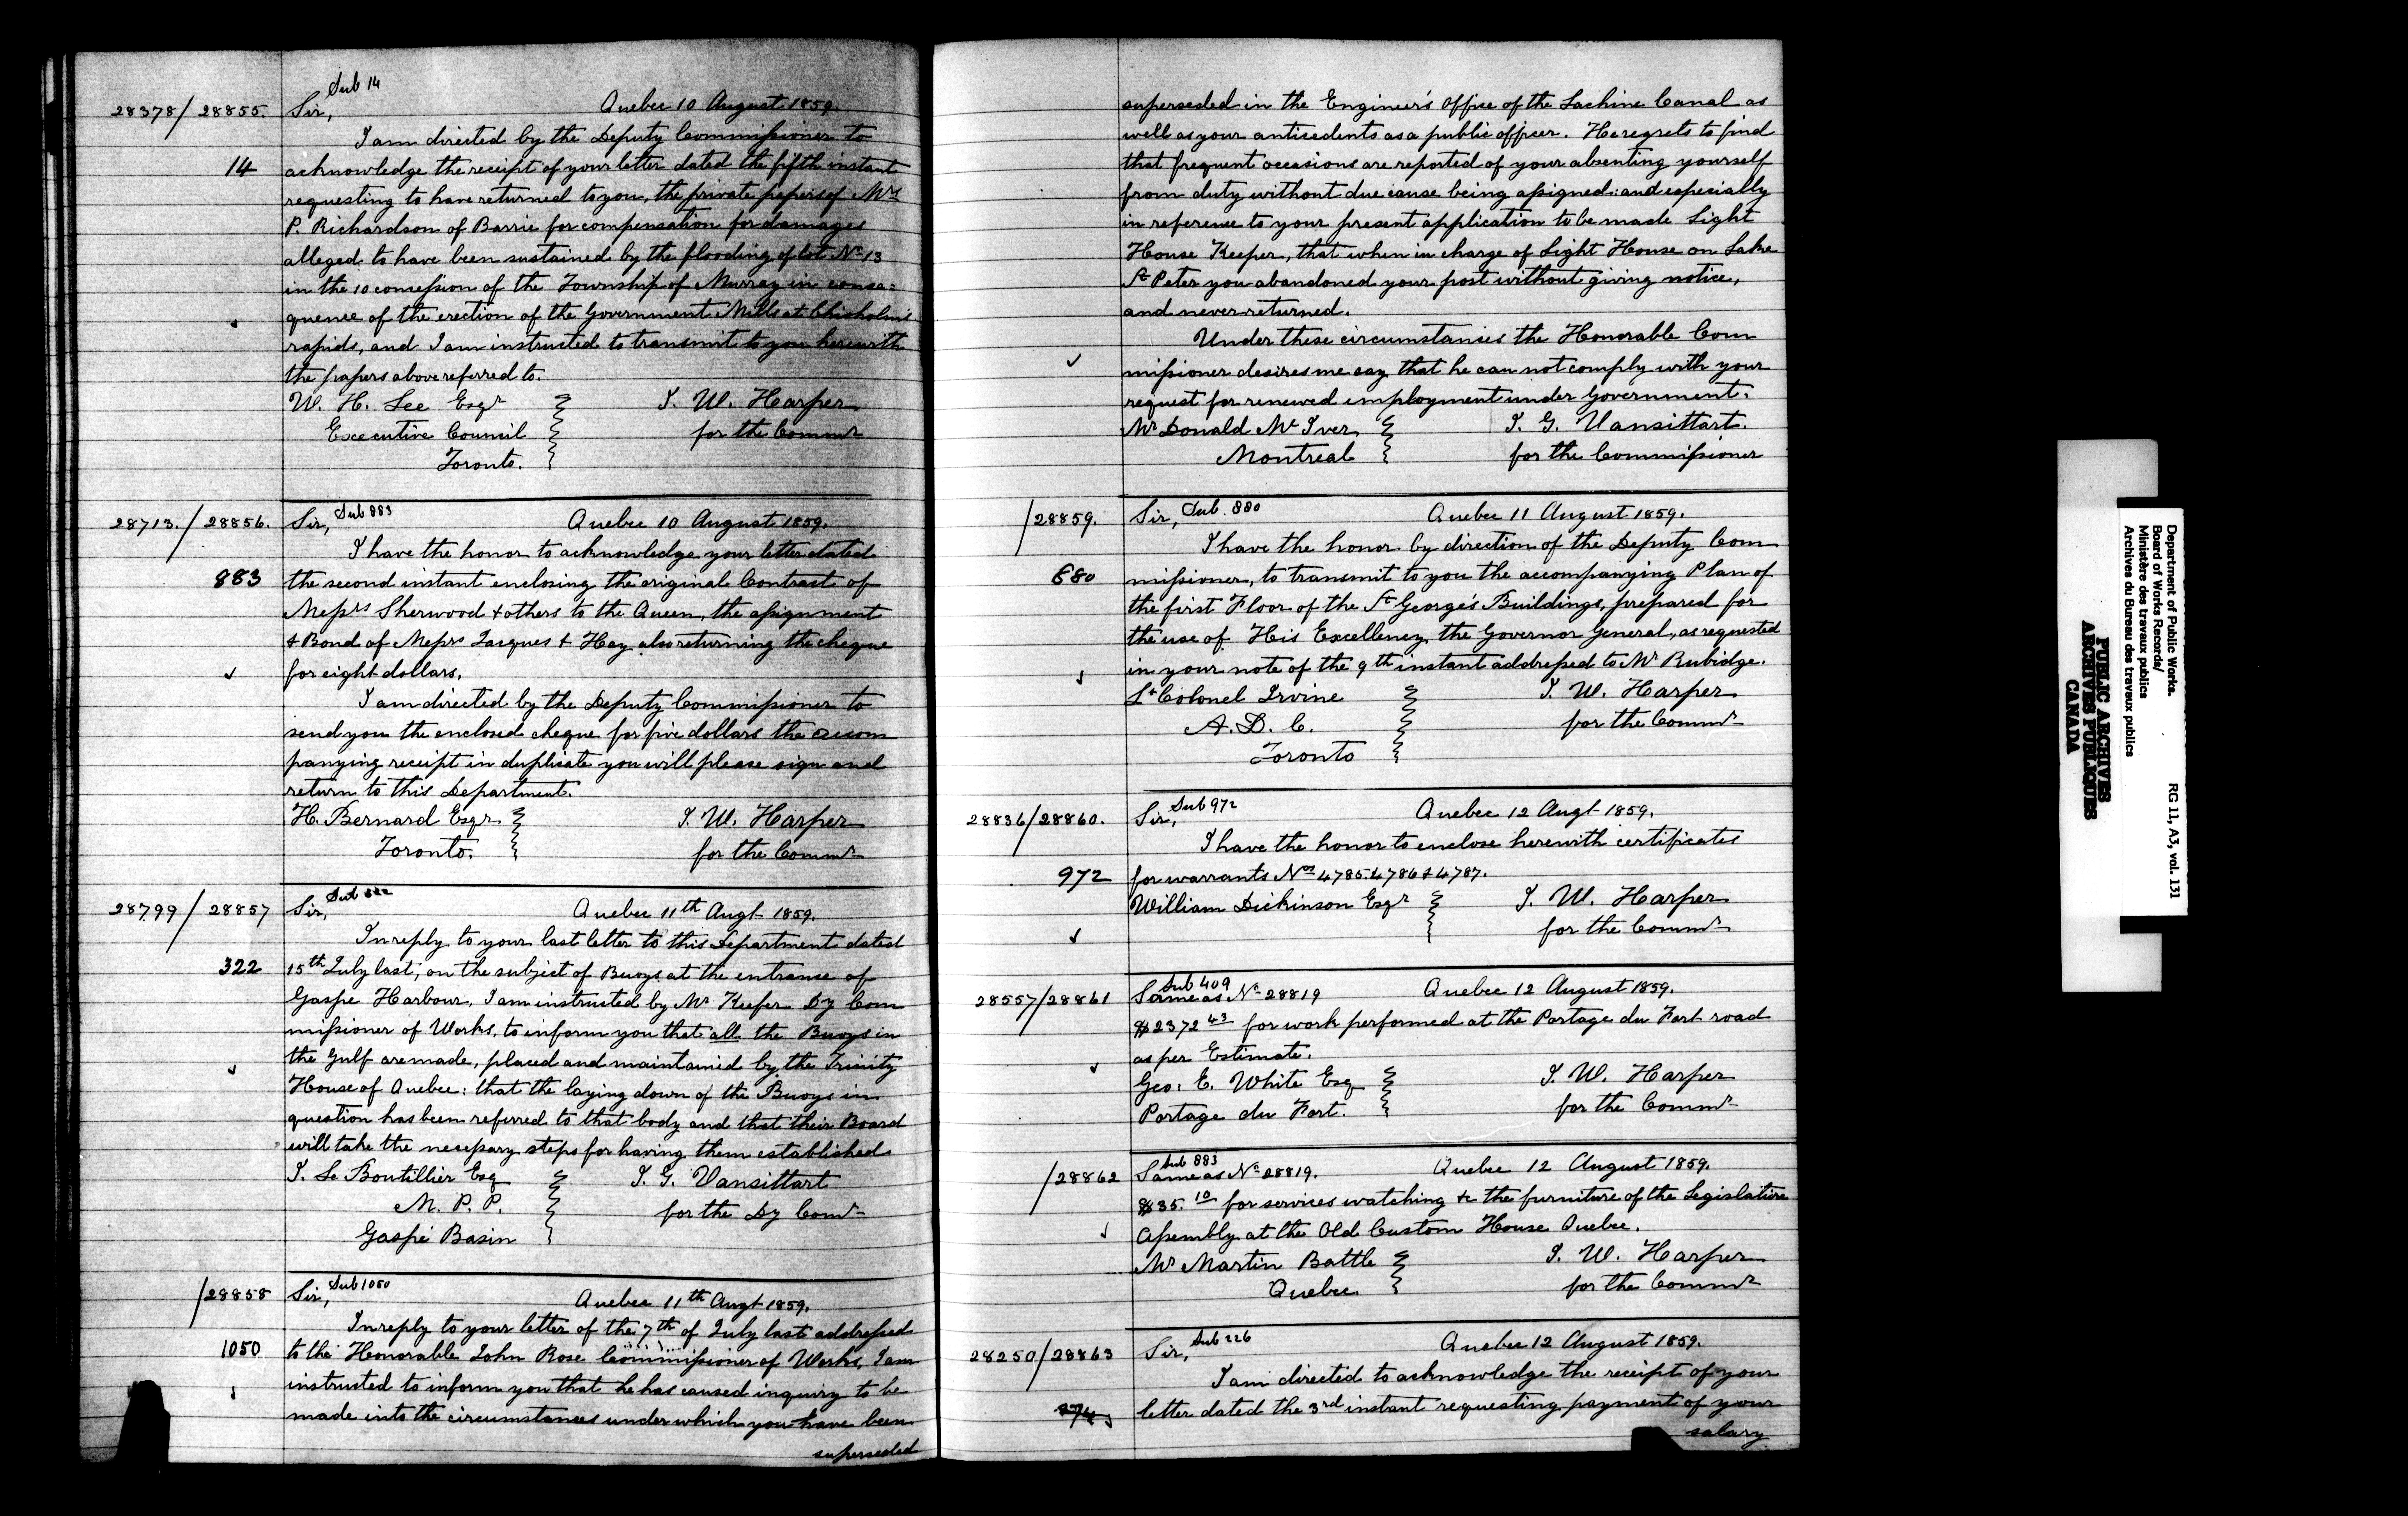 Sub 14
28378/28855. Sir, Quebec 10 August 1859.
I am directed by the Deputy Commissioner to
14 acknowledge the receipt of your letter dated the fifth instant
requesting to have returned to you, the private papers of Mrs
P. Richardson of Barrie for compensation for damages
alleged to have been sustained by the flooding of lot No 13
in the 10 concession of the Township of Murray in conse=
quence of the erection of the Government Mills at Chisholms
rapids, and I am instructed to transmit to you herewith
the papers above referred to.
W. H. Lee Esqr T. W. Harper
Executive Council for the Commr
Toronto.
28713./28856. Sir, Sub 883 Quebec 10 August 1859.
I have the honor to acknowledge your letter dated
883 the second instant enclosing the original Contract of
Messrs Sherwood + others to the Queen, the assignment
+ Bond of Messrs Jacques + Hay also returning the cheque
for eight dollars.
I am directed by the Deputy Commissioner to
send you the enclosed cheque for five dollars the accom
panying receipt in duplicate you will please sign and
return to this Department.
H. Bernard Esqr T. W. Harper
Toronto. for the Commr
28799/28857 Sir, Sub 322 Quebec 11th Augt 1859.
In reply to your last letter to this Department dated
322 15th July last, on the subject of Buoys at the entrance of
Gaspe Harbour, I am instructed by Mr Keefer Dy Com
missioner of Works, to inform you that all the Buoys in
the Gulf are made, placed and maintained by the Trinity
House of Quebec: that the laying down of the Buoys in
question has been referred to that body and that their Board
will take the necessary steps for having them established
J. Le Boutillier Esq T. G. Vansittart
M. P. P. for the Dy Comr
Gaspé Basin
/28858 Sir, Sub 1050 Quebec 11th Augt 1859.
In reply to your letter of the 7th of July last addressed
1050 to the Honorable John Rose Commissioner of Works, I am
instructed to inform you that he has caused inquiry to be
made into the circumstances under which you have been
superseded
superseded in the Engineer's Office of the Lachine Canal as
well as your anticedents as a public officer. He regrets to find
that frequent occasions are reported of your absenting yourself
from duty without due cause being assigned: and especially
in reference to your present application to be made Light
House Keeper, that when in charge of Light House on Lake
St Peter you abandoned your post without giving notice,
and never returned.
Under these circumstances the Honorable Com
missioner desires me say that he can not comply with your
request for renewed employment under Government.
Mr Donald McIver T. G. Vansittart.
Montreal for the Commissioner
/28859. Sir, Sub. 880 Quebec 11 August 1859.
I have the honor by direction of the Deputy Com
880 missioner, to transmit to you the accompanying Plan of
the first Floor of the St George's Buildings, prepared for
the use of His Excellency the Governor General, as requested
in your note of the 9th instant addressed to Mr Rubidge.
Lt Colonel Irvine T. W. Harper
A. D. C. for the Commr
Toronto
28836/28860. Sir, Sub 972 Quebec 12 Augt 1859.
I have the honor to enclose herewith certificates
972 for warrants Nos 4785 4786 & 4787.
William Dickinson Esqr T. W. Harper
for the Commr
Sub 409
28557/28861 Same as No 28819 Quebec 12 August 1859.
$2372 43 for work performed at the Portage du Fort road
as per Estimate.
Geo: E. White Esq T. W. Harper
Portage du Fort. for the Commr
Sub 883
/28862 Same as No 28819. Quebec 12 August 1859.
$35. 10 for services watching &c the furniture of the Legislative
Assembly at the Old Custom House Quebec.
Mr Martin Battle T. W. Harper
Quebec for the Commr
28250/28863 Sir, Sub 226 Quebec 12 August 1859.
I am directed to acknowledge the receipt of your
letter dated the 3rd instant requesting payment of your
salary
Department of Public Works. RG 11, A3, vol. 131
Board of Works Records/
Ministère des travaux publics
Archives du Bureau des travaux publics
PUBLIC ARCHIVES
ARCHIVES PUBLIQUES
CANADA